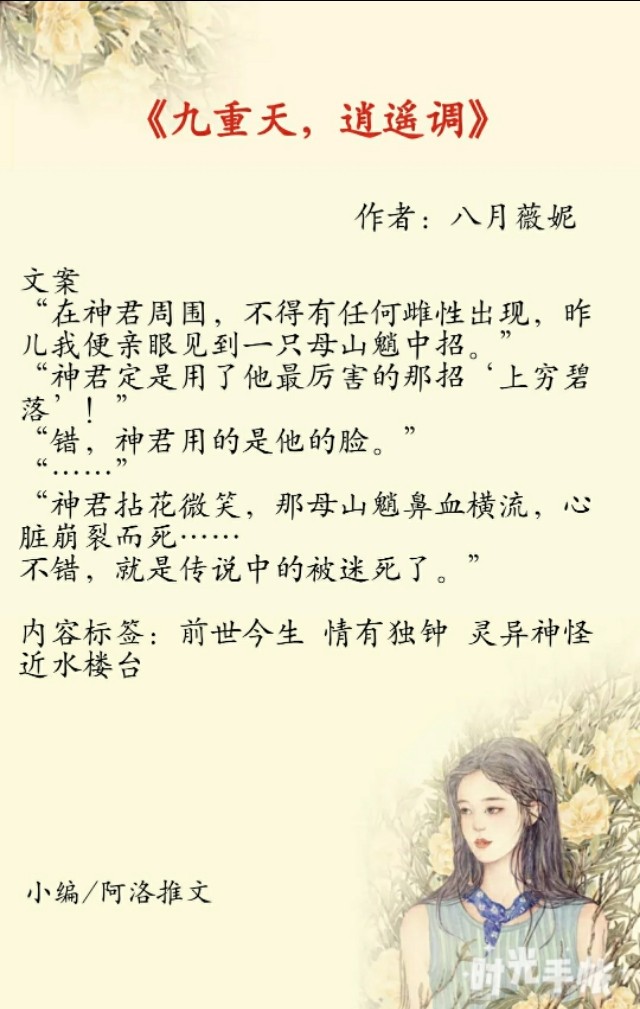 《九重天，逍遥调》
作者：八月薇妮
文案
“在神君周围，不得有任何雌性出现，昨
儿我便亲眼见到一只母山魈中招。”
“神君定是用了他最厉害的那招‘上穷碧
落’！”
“错，神君用的是他的脸。”
“……”
“神君拈花微笑，那母山魈鼻血横流，心
脏崩裂而死……
不错，就是传说中的被迷死了。”
内容标签：前世今生 情有独钟 灵异神怪
近水楼台
小编/阿洛推文
时光手帐